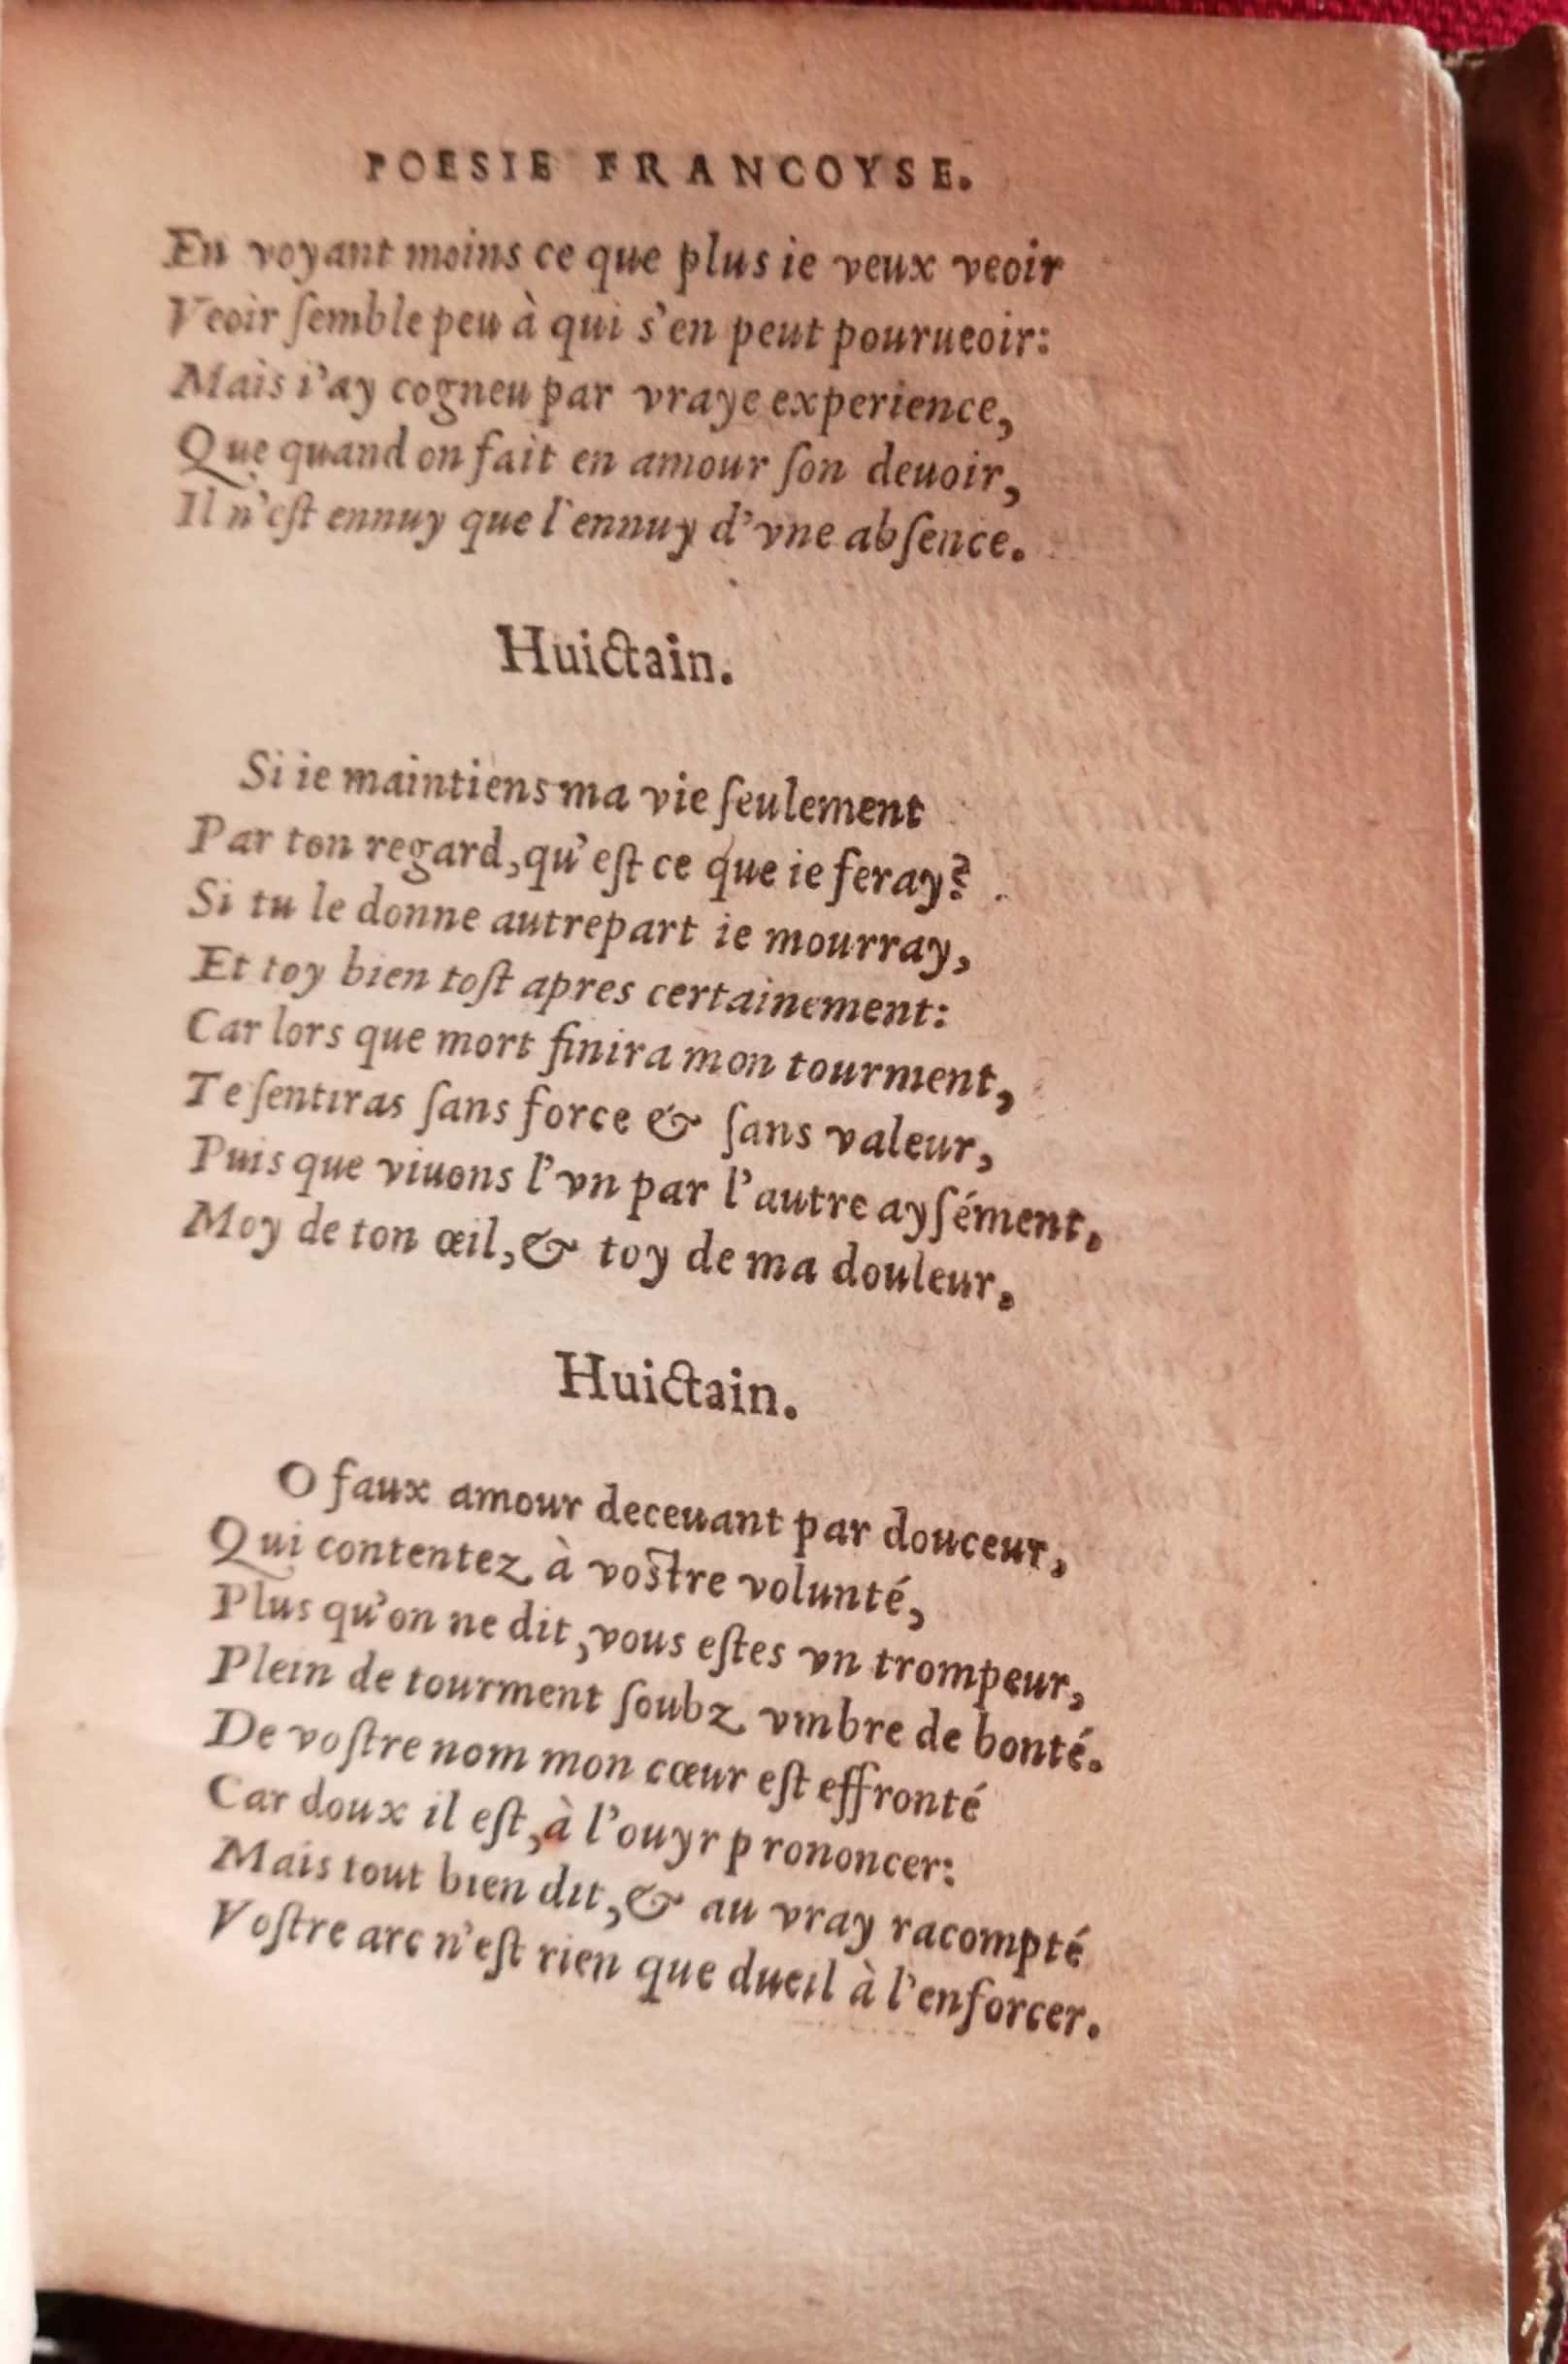 POESIE FRANCOYSE.
En voyant moins ce que plus ie veux veoir
Veoir ſemble peu à qui s'en peut pourueoir:
Mais i'ay cogneu par vraye experience,
Que quand on fait en amour ſon deuoir,
Il n'eſt ennuy que l'ennuy d'vne abſence.
Huictain.
Si ie maintiens ma vie ſeulement
Par ton regard, qu'eſt ce que ie feray?
Si tu le donne autrepart ie mourray,
Et toy bien toſt apres certainement:
Car lors que mort finira mon tourment,
Te ſentiras ſans force & ſans valeur,
Puis que viuons l'vn par l'autre ayſément,
Moy de ton œil, & toy de ma douleur.
Huictain.
O faux amour deceuant par douceur,
Qui contentez à voſtre volunté,
Plus qu'on ne dit, vous eſtes vn trompeur,
Plein de tourment ſoubz vmbre de bonté.
De voſtre nom mon cœur eſt effronté
Car doux il eſt, à l'ouyr prononcer:
Mais tout bien dit, & au vray racompté
Voſtre arc n'eſt rien que dueil à l'enforcer.